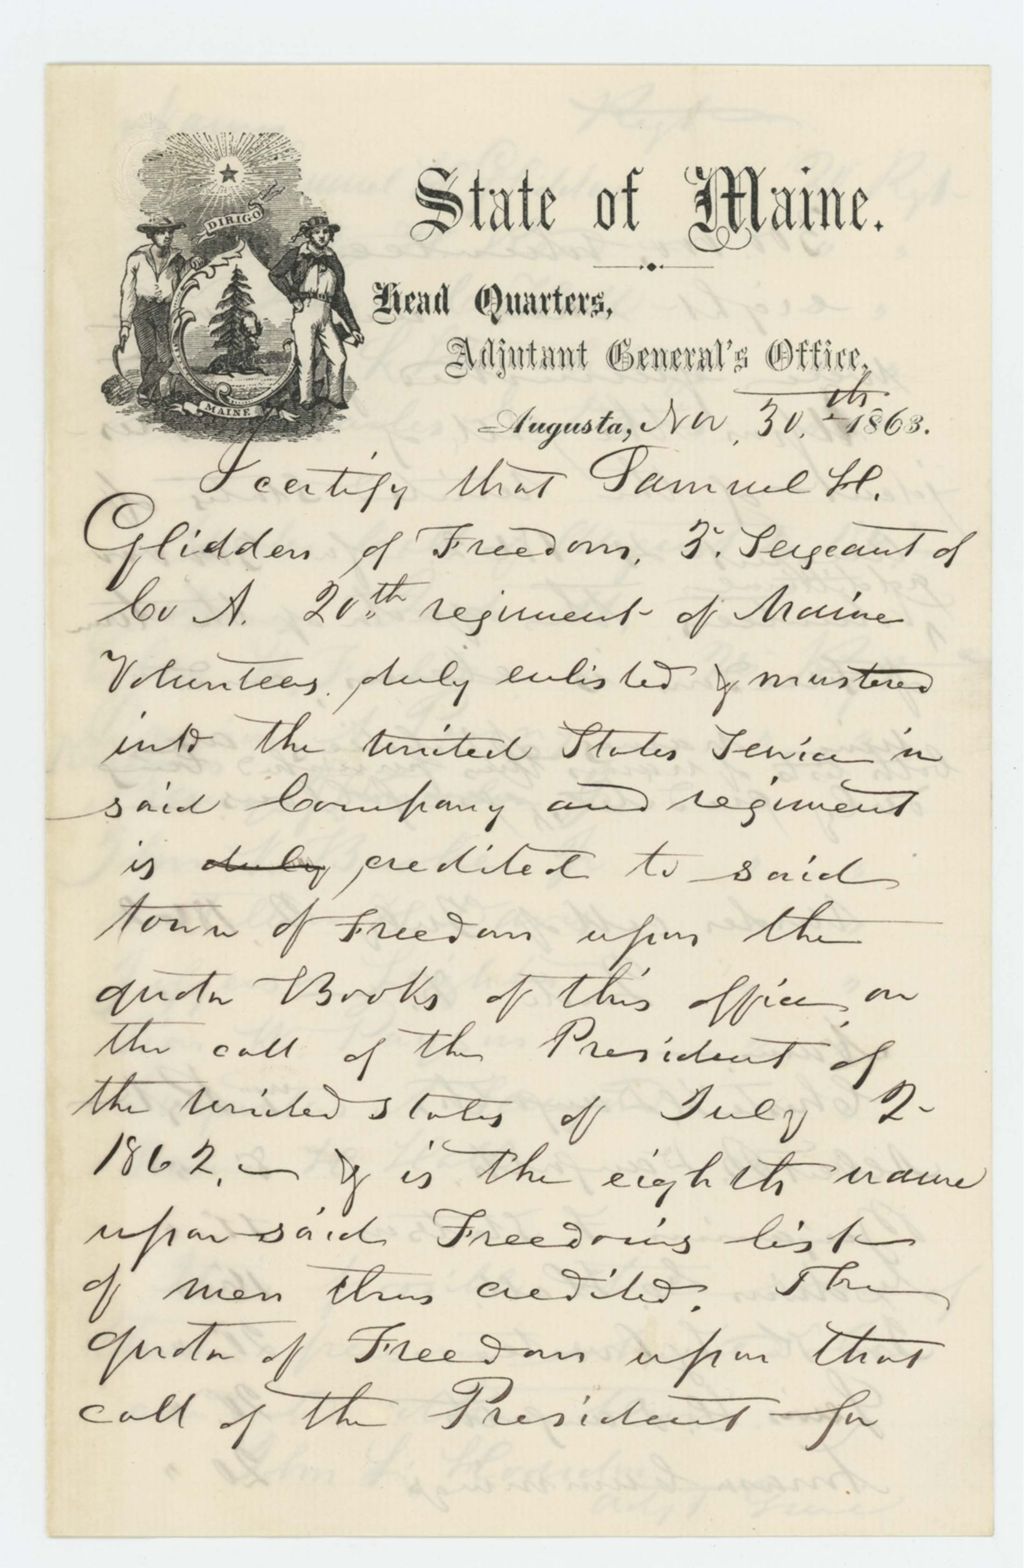 DIRIGO
MAINE
State of Maine.
Head Quarters,
Adjutant General's Office,
Augusta, Nov. 30.th 1863.
I certify that Samuel H.
Glidden of Freedom, 3d. Sergeant of
Co A. 20th regiment of Maine
Volunteers, duly enlisted & mustered
into the United States Service in
said Company and regiment
is duly credited to said
town of Freedom upon the
quota Books of this office, on
the call of the President of
the United States of July 2-
1862, - & is the eighth name
upon said Freedom's list
of men thus credited. The
quota of Freedom upon that
call of the President for